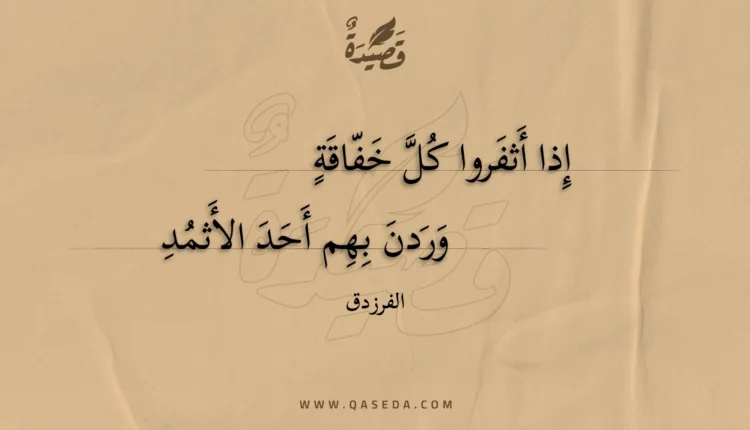 قَصِيدَةٌ
إِذا أَثفَروا كُلَّ خَفّاقَةٍ
وَرَدنَ بِهِم أَحَدَ الأَثمُدِ
الفرزدق
WWW.QASEDA.COM